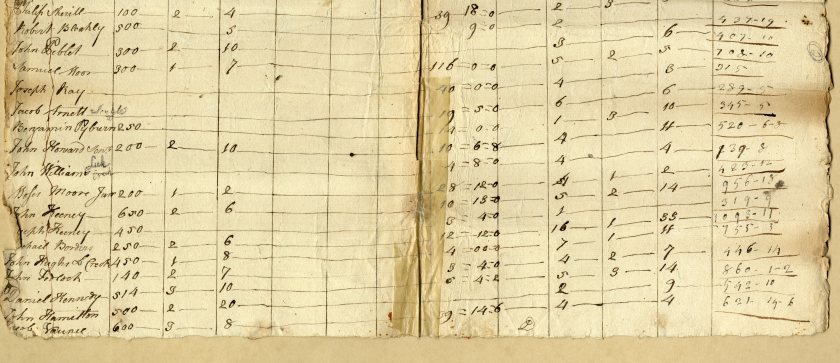 Philip Sherill 100 2 4 39 18=0 2 3 437-19
Robert Blackly 500 5 9=0 2 6 407-10
John 300 2 10 3 2 5 702-10
Samuel Moor 300 1 7 116=0=0 5 3 315
Joseph Ray 40=0=0 4 6 289-5
Jacob Arnett 19=5=0 6 3 10 345-5
Benjamin Pyburn 250 14 0-0 1 11 520-6-3
John Howard 200 2 10 10 6=8 4 4 139-8
John William 4=8=0 4 1 483-12
Moses Moore Junr 200 1 2 28=12=0 2 14 956-18
John Keeney 650 2 6 10=18=0 5 319-9
Joseph Keeney 450 3 4=0 1 1 33 1093-11
Michael Borders 250 2 6 12=12=0 16 1 11 755-3
John Hughs L Creek 450 1 8 4=00=0 7 2 7 446-14
John 140 2 7 3 4=0 4 3 14 860-1-2
Daniel Kennedy 514 3 10 5 4=2 5 9 542-10
John Hamilton 500 2 20 2 4 621-14-6
Jacob 600 3 8 39=14=6 4